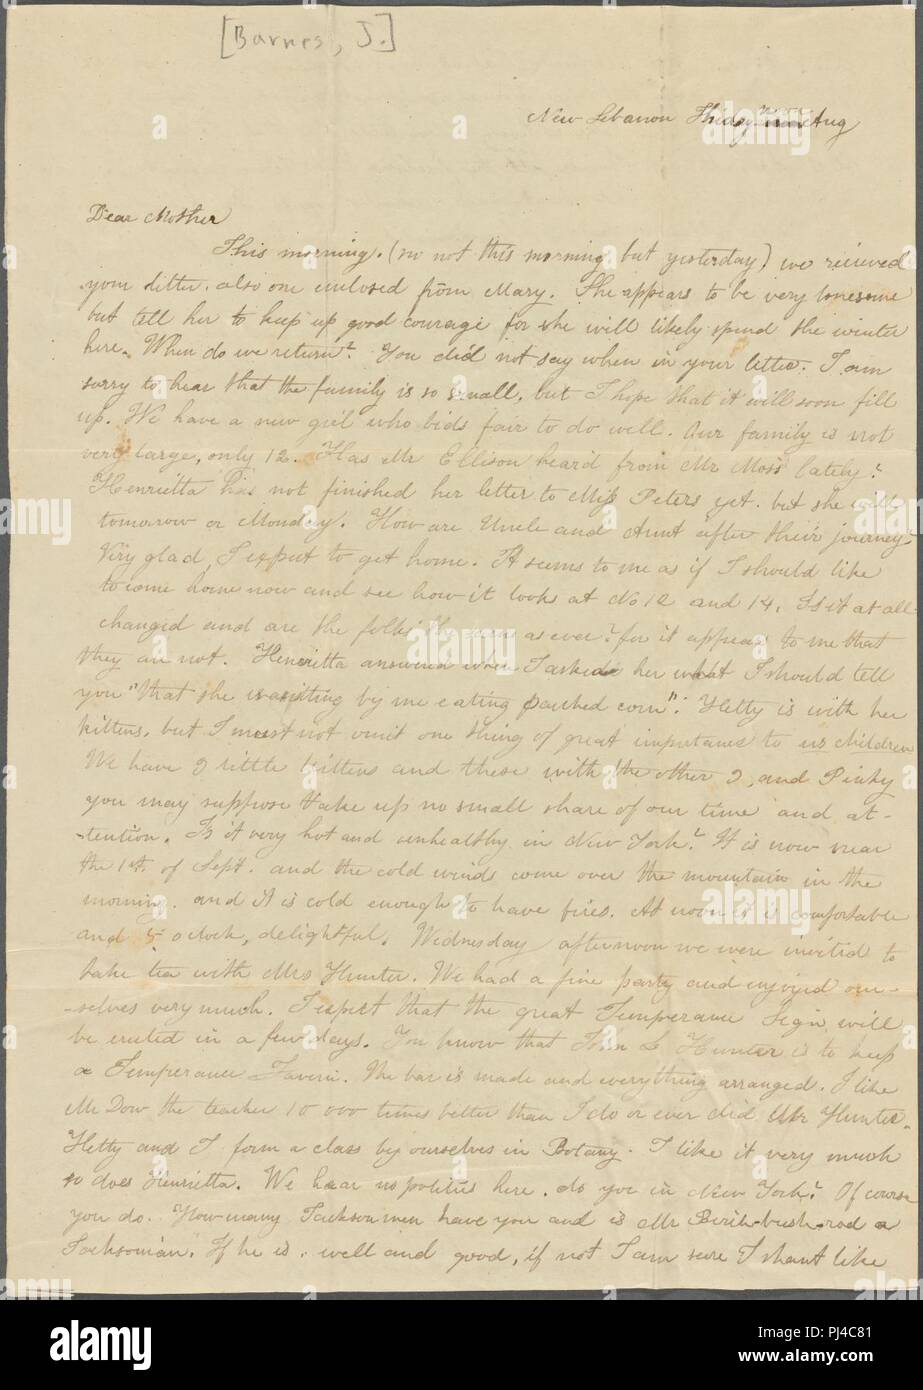 [Barnes, J.]
New Lebanon Friday noon Aug
Dear Mother
This morning. (no not this morning but yesterday) we recieved
your letter. also one enclosed from Mary. She appears to be very lonesome
but tell her to keep up good courage for she will likely spend the winter
here. When do we return? You did not say when in your letter. I am
sorry to hear that the family is so small, but I hope that it will soon fill
up. We have a new girl who bids fair to do well. Our family is not
very large, only 12. Has Mr Ellison heard from Mr Moss lately?
Henrietta has not finished her letter to Miss Peters yet. but she will
tomorrow or Monday. How are Uncle and Aunt after their journey?
Very glad, I expect to get home. It seems to me as if I should like
to come home now and see how it looks at No 12 and 14. Is it at all
changed and are the folks the same as ever? for it appears to me that
they are not. Henrietta answered when I asked her what I should tell
you "that she is sitting by me eating parched corn". Hetty is with her
kittens, but I must not omit one thing of great importance to us children
We have 2 little kittens and these with the other 2, and Pinky
you may suppose take up no small share of our time and at-
-tention. Is it very hot and unhealthy in New York? It is now near
the 1st of Sept. and the cold winds come over the mountain in the
morning. and it is cold enough to have fires. At noon it is comfortable
and 5 oclock, delightful. Wednesday afternoon we were invited to
take tea with Mrs Hunter. We had a fine party and enjoyed our-
-selves very much. I expect that the great Temperance Sign will
be erected in a few days. You know that John L Hunter is to keep
a Temperance Tavern. The bar is made and everything arranged. I like
Mr Dow the teacher 10 000 times better than I do or ever did Mr Hunter.
Hetty and I form a class by ourselves in Botany. I like it very much
so does Henrietta. We hear no politics here. do you in New York? Of course
you do. How many Jackson men have you and is Mr Birch-bush-rod a
Jacksonian. If he is. well and good, if not I am sure I shant like
alamy
Image ID: PJ4C81
www.alamy.com